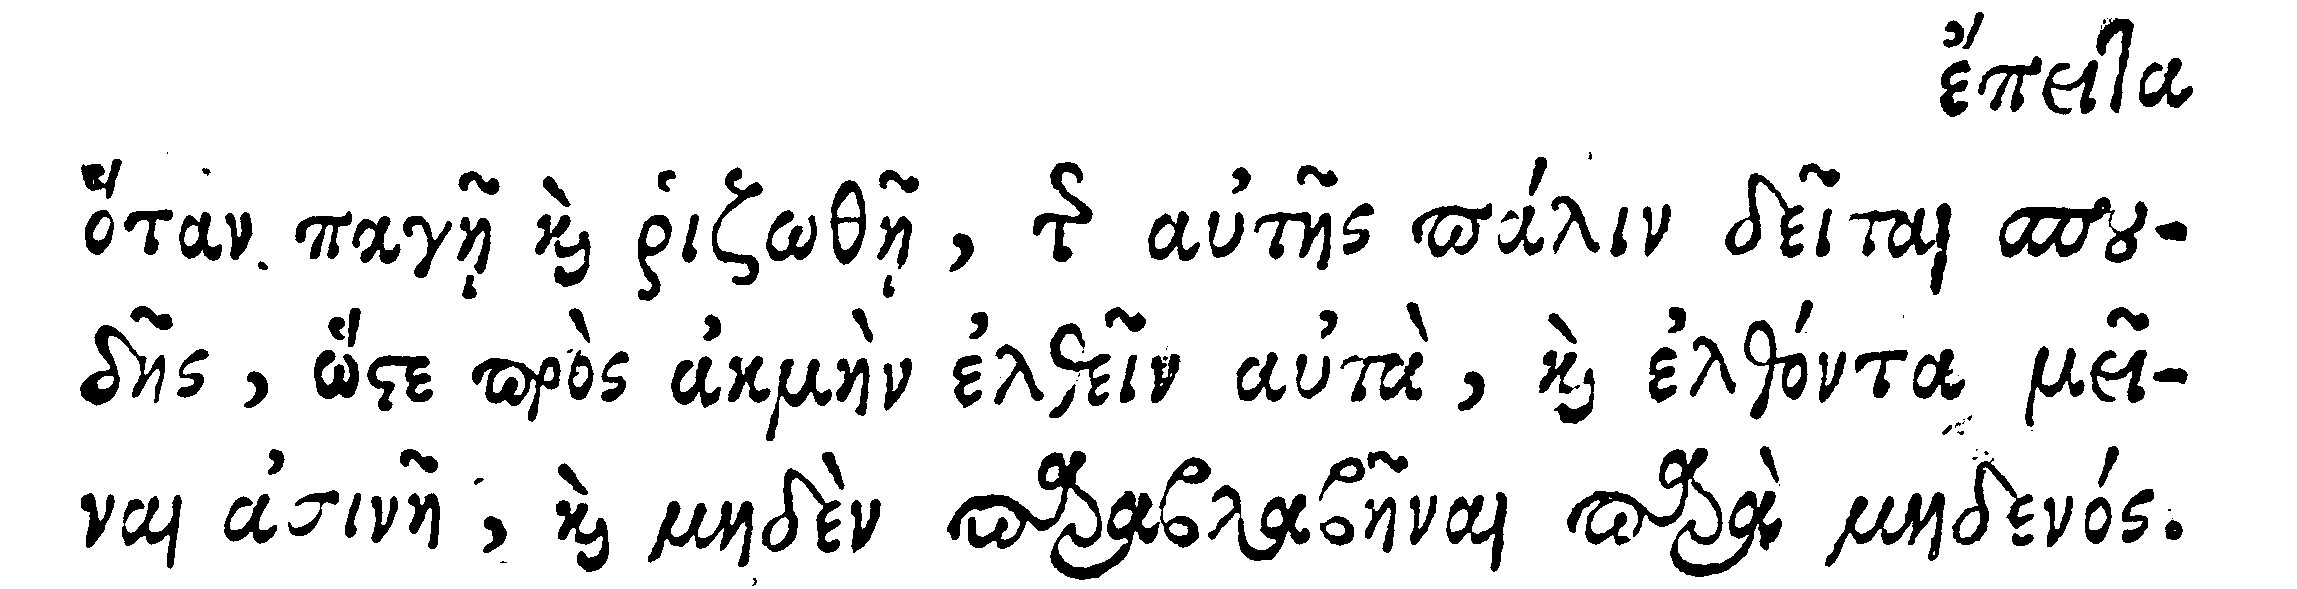 ἔπειτα
ὅταν παγῇ καὶ ῥιζωθῇ, τῆς αὐτῆς πάλιν δεῖται σπου-
δῆς, ὥστε πρὸς ἀκμὴν ἐλθεῖν αὐτὰ, καὶ ἐλθόντα μεῖ-
ναι ἀσινῆ, καὶ μηδὲν παραβλαβῆναι παρὰ μηδενός.